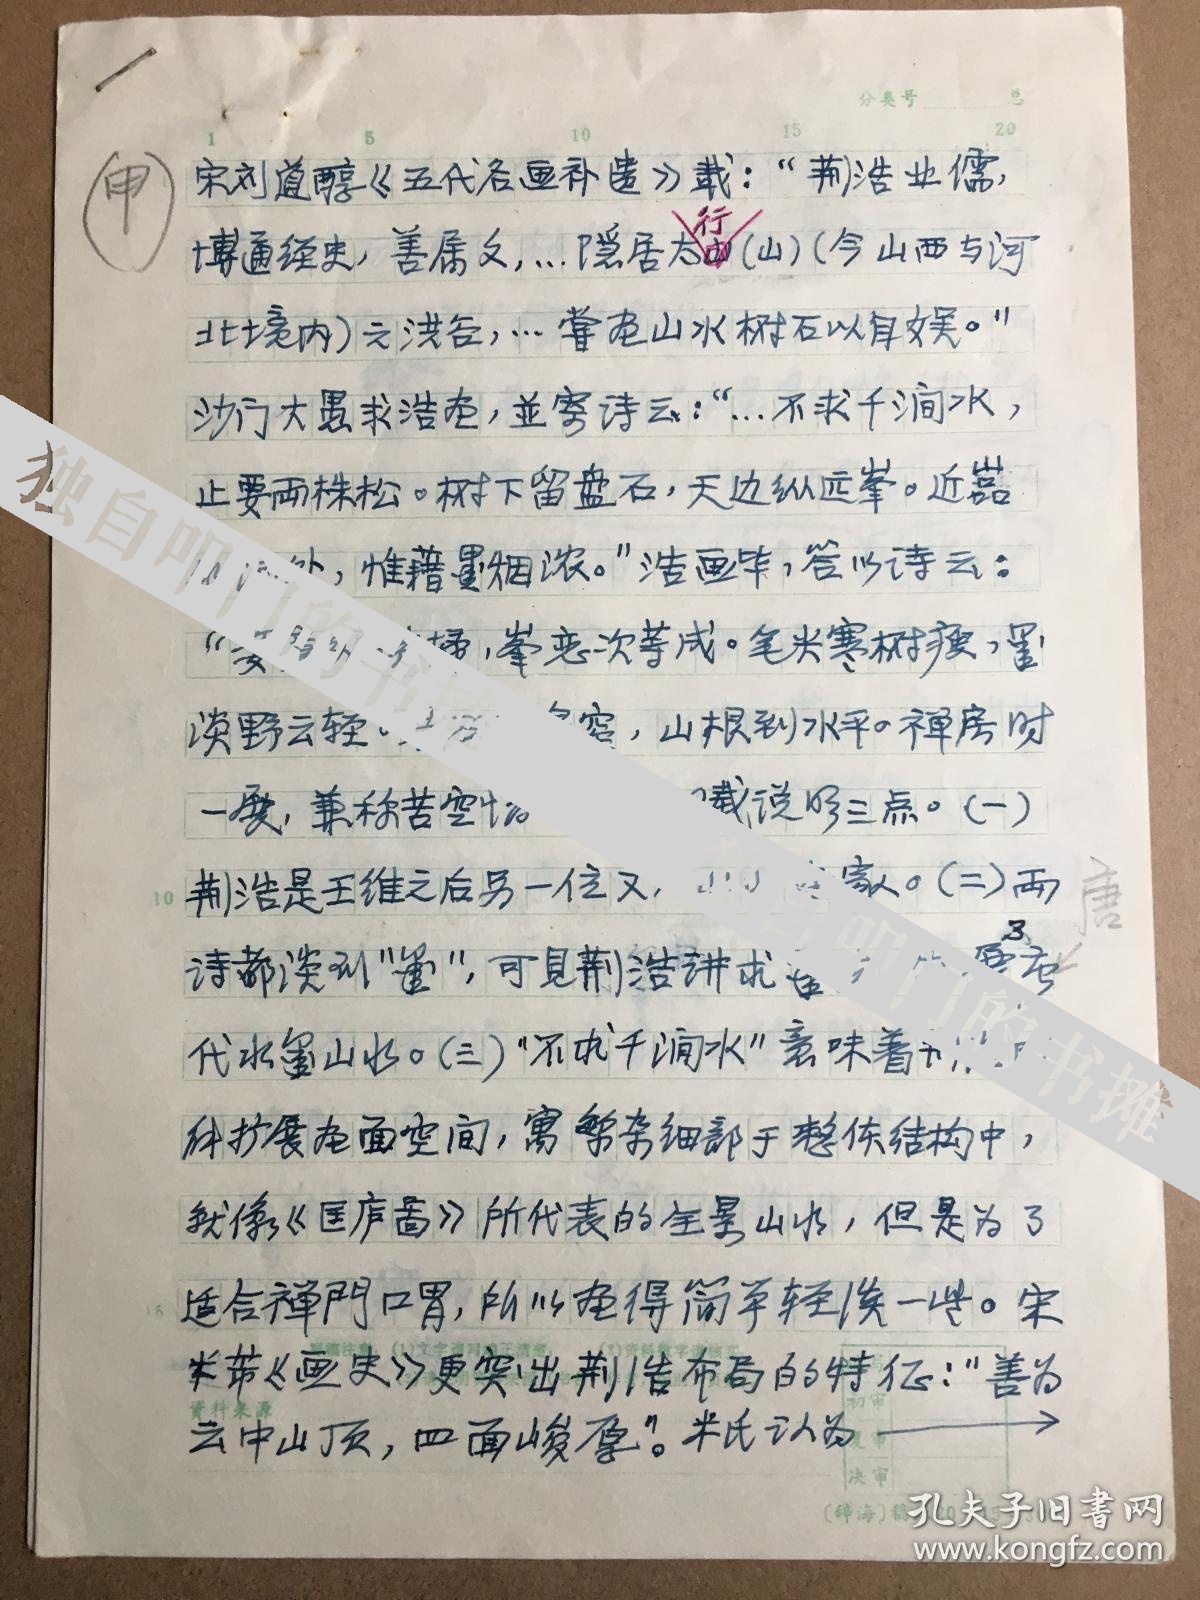 分类号 总
1 5 10 15 20
甲
宋刘道醇《五代名画补遗》载：“荆浩业儒，
博通经史，善属文，…隐居太行(山)(今山西与河
北境内)之洪谷，…尝画山水树石以自娱。”
沙门大愚求浩画，並寄诗云：“…不求千涧水，
止要两株松。树下留盘石，天边纵远峯。近嵓
惟藉墨烟浓。”浩画毕，答以诗云：
峯峦次等成。笔尖寒树瘦，墨
淡野云轻。 ，山根到水平。禅房时
一展，兼称苦空情 载说明三点。(一)
10 荆浩是王维之后另一位文 家。(二)两
唐
诗都谈到“墨”，可见荆浩讲求
代水墨山水。(三)“不求千涧水”意味着
扩展画面空间，寓繁杂细部于整体结构中，
就像《匡庐图》所代表的全景山水，但是为了
适合禅門口胃，所以画得简单轻淡一些。宋
米芾《画史》更突出荆浩布局的特征：“善为
资料来源
初审
云中山顶，四面峻厚”。米氏认为
复审
决审
〔辞海〕稿
独自叩门的书摊
独自叩门的书摊
孔夫子旧书网
www.kongfz.com